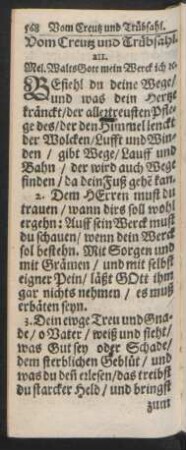 568 Vom Creutz und Trübsahl.
Vom Creutz und Trübsahl.
XII.
Mel. Walts Gott mein Werck ich ꝛc.
BEfiehl du deine Wege/
und was dein Hertze
kränckt/der allertreusten Pfle-
ge des/der den Himmel lenckt
der Wolcken/Lufft und Win-
den / gibt Wege/Lauff und
Bahn / der wird auch Wege
finden / da dein Fuß gehẽ kan.
2. Dem HErren must du
trauen / wann dirs soll wohl
ergehn: Auff sein Werck must
du schauen/ wenn dein Werck
sol bestehn. Mit Sorgen und
mit Grämen / und mit selbst
eigner Pein/ läßt GOtt ihm
gar nichts nehmen / es muß
erbäten seyn.
3. Dein ewge Treu und Gna-
de / o Vater / weiß und sieht/
was Gut sey oder Schade/
dem sterblichen Geblüt / und
was du deñ erlesen/das treibst
du starcker Held / und bringst
zum